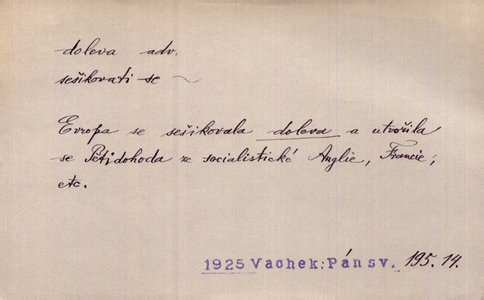 doleva adv.
sešikovati se ~
Evropa se sešikovala doleva a utvořila
se Pětidohoda ze socialistické Anglie, Francie,
etc.
1925 Vachek: Pán sv. 195.14.